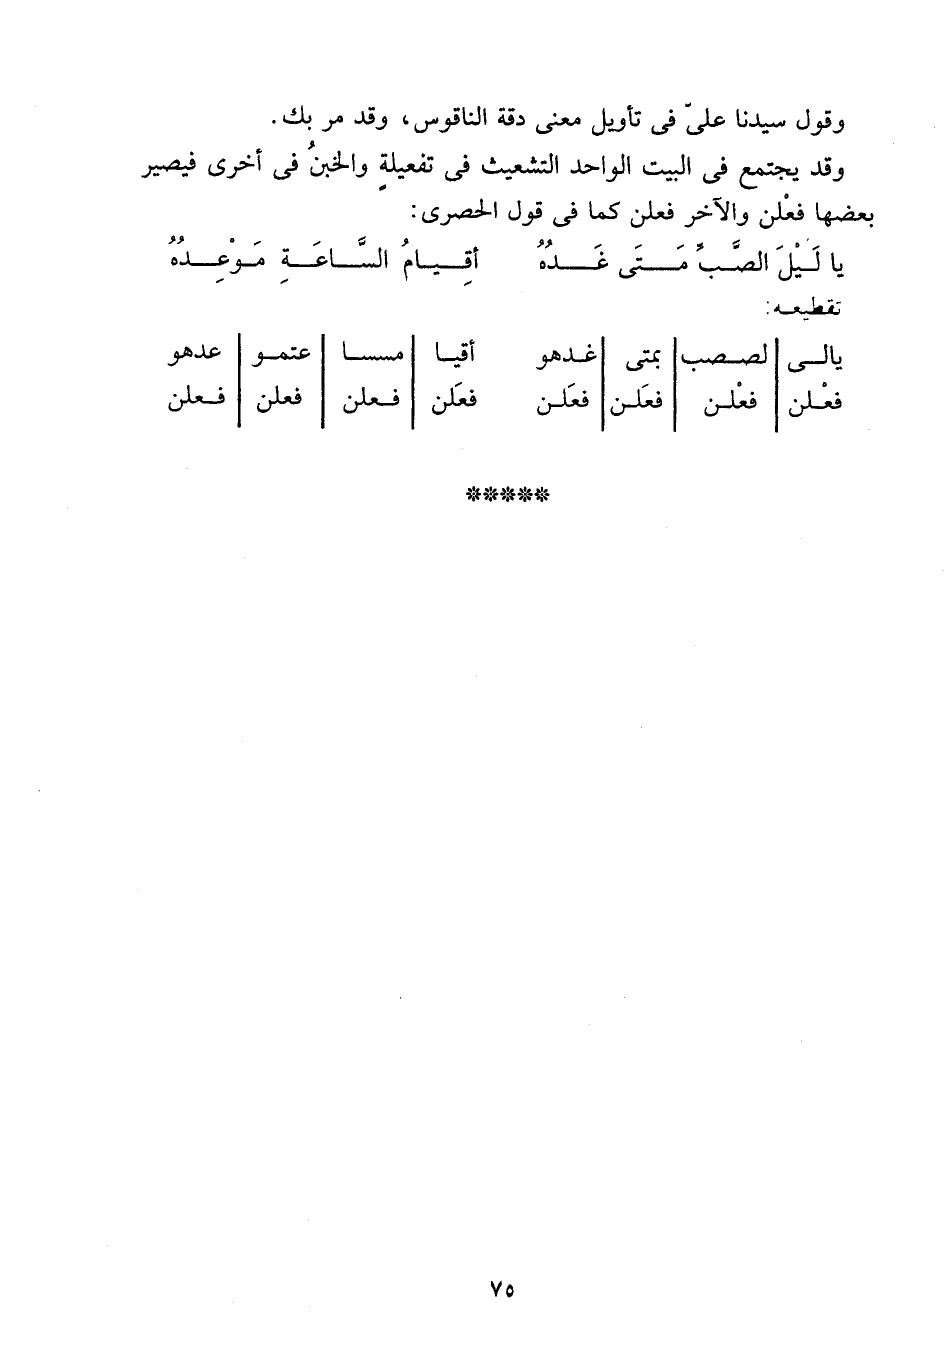 وقول سيدنا علىّ فى تأويل معنى دقة الناقوس، وقد مر بك.
وقد يجتمع فى البيت الواحد التشعيث فى تفعيلةٍ والخبنُ فى أخرى فيصير
بعضها فعْلن والآخر فعلن كما فى قول الحصرى:
يا لَيْلَ الصَّبُّ مَتَى غَدُهُ أقِيامُ السَّاعَةِ مَوْعِدُهُ
تقطيعه:
يالى | لصصب | بمتى | غدهو أقيا | مسا | عتمو | عدهو
فعْلن | فعْلن | فعَلن | فعَلن فعَلن | فعلن | فعلن | فعلن
*****
٧٥